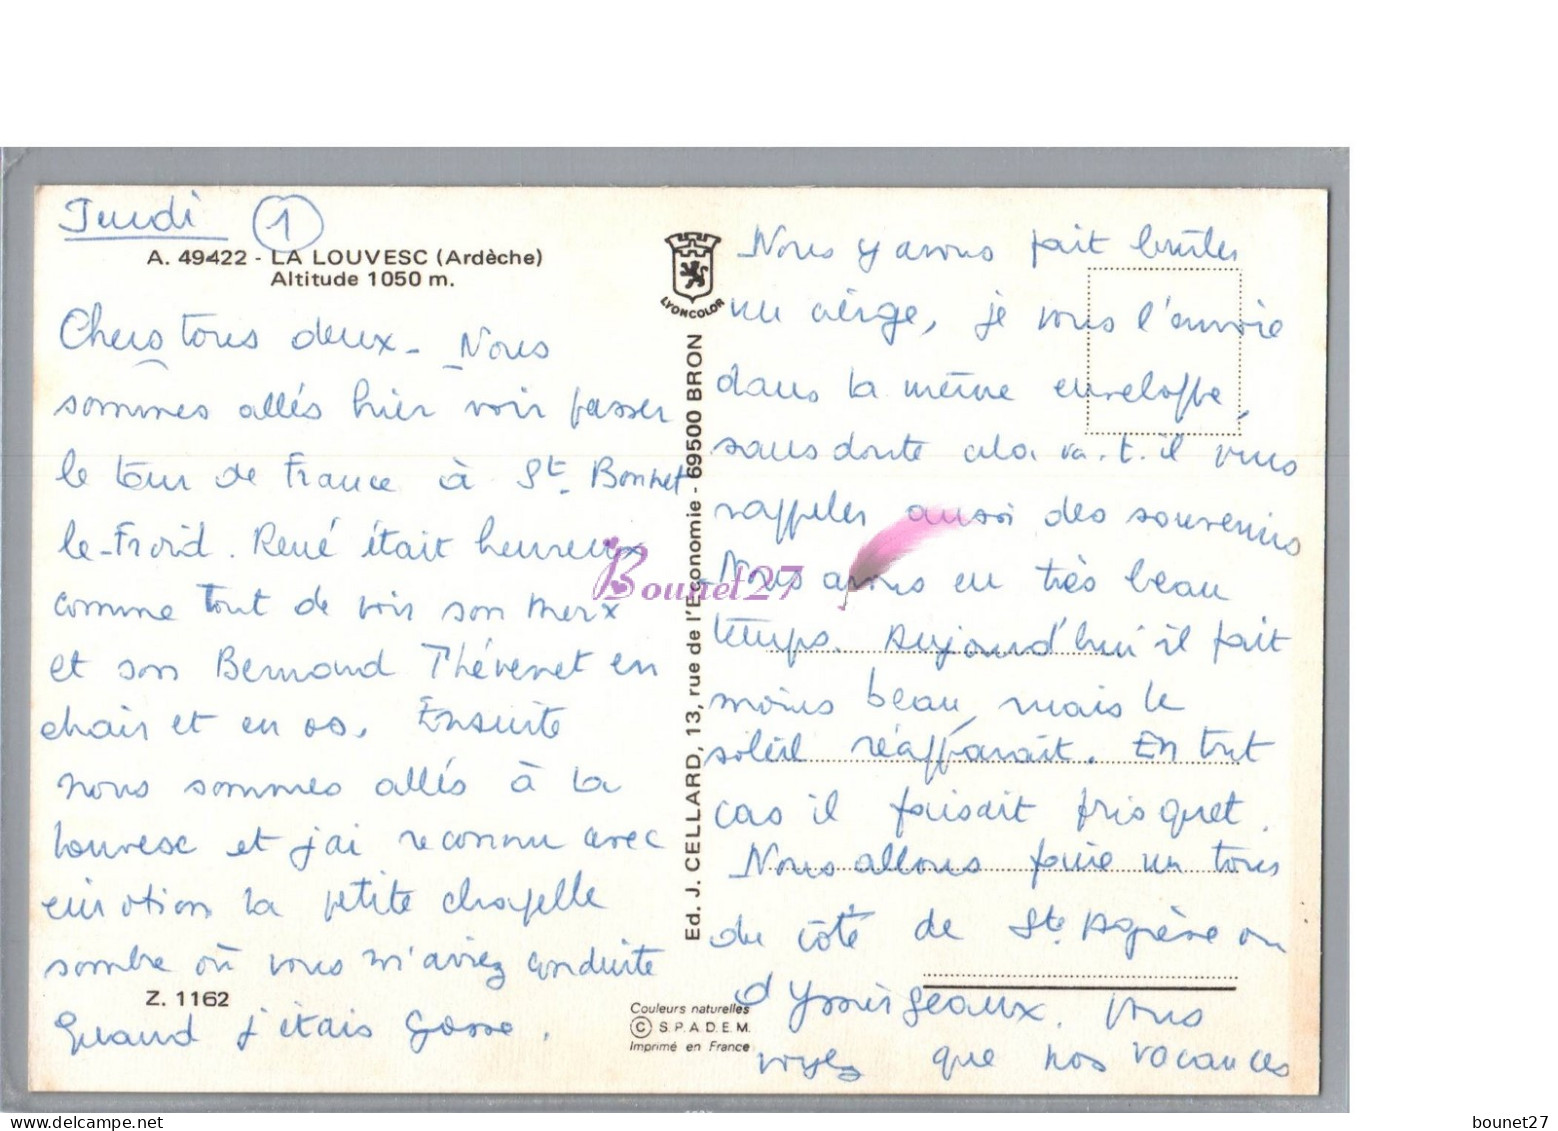 Jeudi 1
A. 49422 - LA LOUVESC (Ardèche)
Altitude 1050 m.
Chers tous deux - Nous
sommes allés hier voir passer
le tour de France à St. Bonnet
le-Froid. René était heureux
comme tout de voir son Merx
et son Bernard Thévenet en
chair et en os. Ensuite
nous sommes allés à La
Louvesc et j'ai reconnu avec
émotion la petite chapelle
sombre où vous m'aviez conduite
quand j'étais gosse.
Z. 1162
LYONCOLOR
Ed. J. CELLARD, 13, rue de l'Economie - 69500 BRON
Couleurs naturelles
© S.P.A.D.E.M.
Imprimé en France
Bounet27
Nous y avons fait brûler
un cierge, je vous l'envoie
dans la même enveloppe,
sans doute cela va-t-il vous
rappeler aussi des souvenirs
Nous avons eu très beau
temps. Aujourd'hui il fait
moins beau, mais le
soleil réapparait. En tout
cas il faisait frisquet.
Nous allons faire un tour
du côté de St. Agrève ou
d'Yssingeaux. Vous
voyez que nos vacances
bounet27